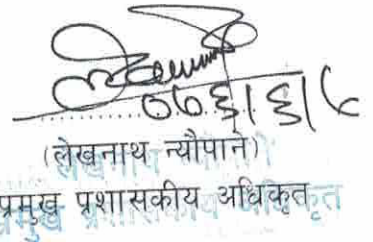 ०७६।६।८
(लेखनाथ न्यौपाने)
प्रमुख प्रशासकीय अधिकृत